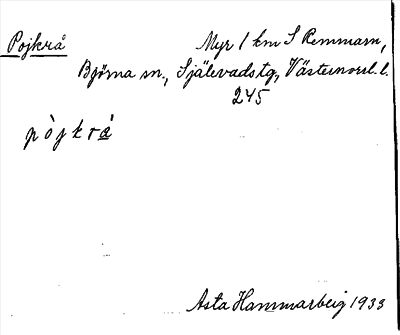 Pojkrå
Myr 1 km S Remmarn,
Björna sn., Själevads tg, Västernorrl. l.
245
pòjkrǻ
Asta Hammarberg 1933